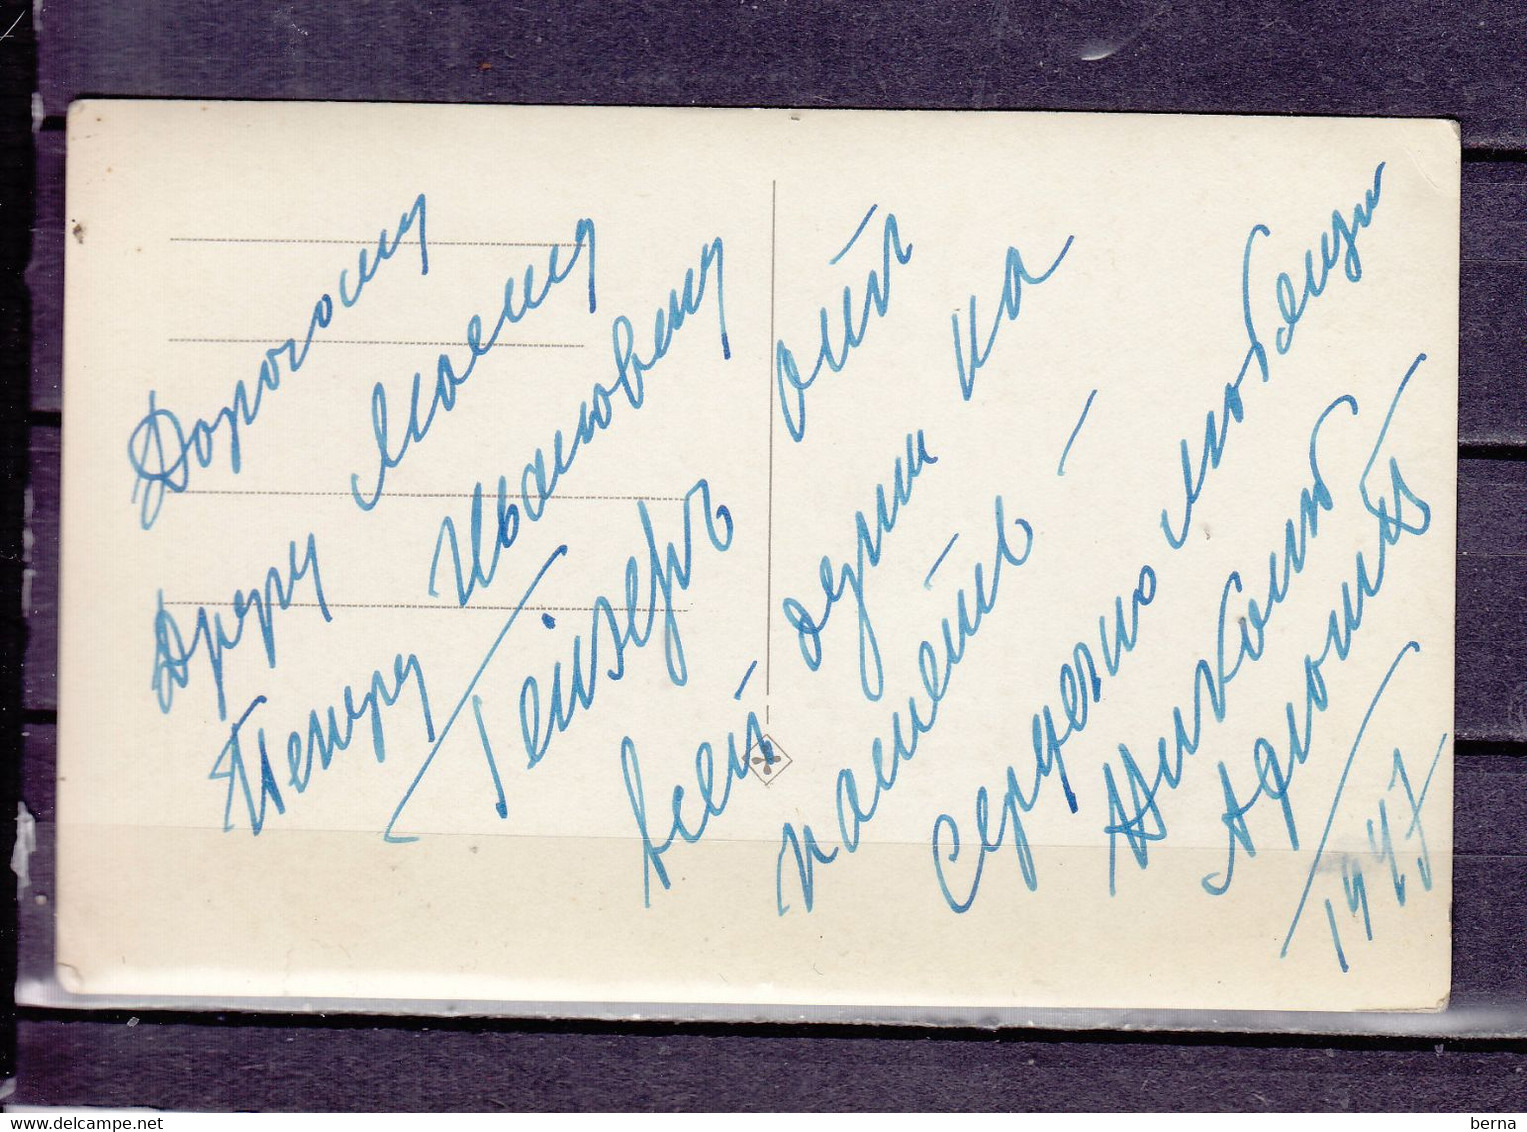 Дорогому
другу моему
Петру Ивановичу
Гейзеръ отъ
всей души на
память —
Сердечно любящи
Николай
1947
www.delcampe.net
berna